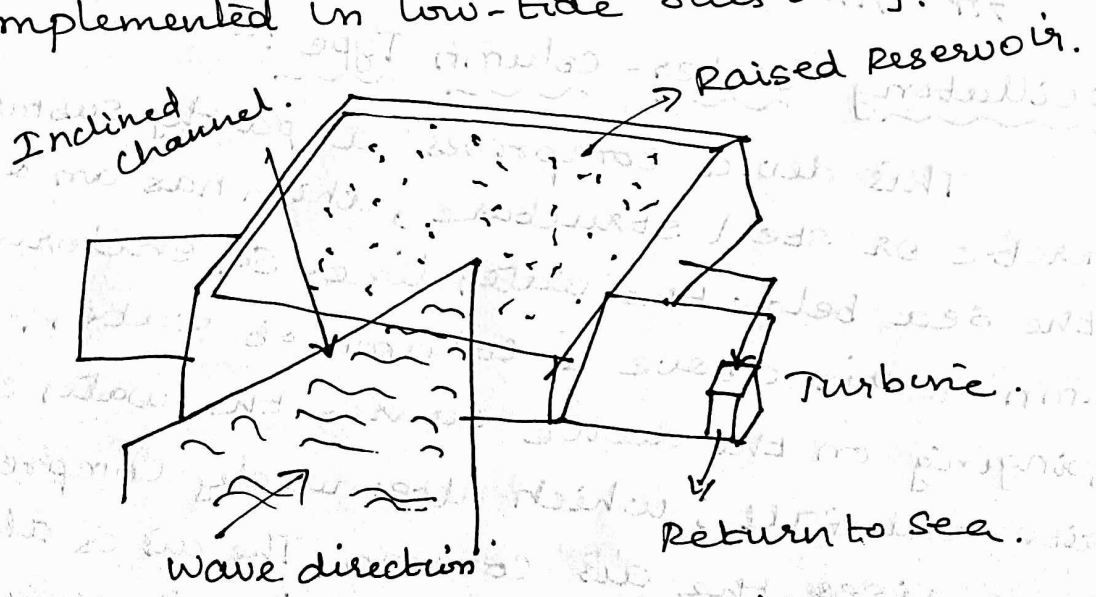 mplemented in low-tide
Raised Reservoir.
Inclined
channel.
Turbine.
Return to sea.
wave direction